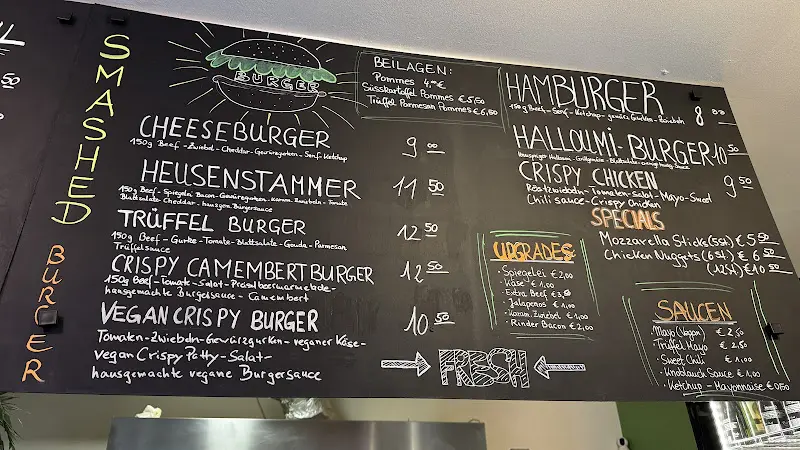 50
SMASHED
BURGER
BURGER
CHEESEBURGER 9 00
150g Beef - Zwiebel - Cheddar - Gewürzgurken - Senf - Ketchup
HEUSENSTAMMER 11 50
150g Beef - Spiegelei - Bacon - Gewürzgurken - Karam. Zwiebeln - Tomate
Blattsalate - Cheddar - hausgem. Burgersauce
TRÜFFEL BURGER 12 50
150g Beef - Gurke - Tomate - Blattsalate - Gouda - Parmesan
Trüffelsauce
CRISPY CAMEMBERT BURGER 12 50
150g Beef - Tomate - Salat - Preiselbeermarmelade -
hausgemachte Burgersauce - Camembert
VEGAN CRISPY BURGER 10 50
Tomaten - Zwiebeln - Gewürzgurken - veganer Käse -
vegan Crispy Patty - Salat -
hausgemachte vegane Burgersauce
BEILAGEN:
Pommes 4,00 €
Süsskartoffel Pommes € 5,50
Trüffel Parmesan Pommes € 6,50
HAMBURGER 8
150g Beef - Senf - Ketchup - gewürz Gurken - Zwiebeln
HALLOUMI-BURGER 10 50
CRISPY CHICKEN 9 50
Röstzwiebeln - Tomaten - Salat - Mayo - Sweet
Chili sauce - Crispy Chicken
SPECIALS
Mozzarella Sticks (5St) € 5 50
Chicken Nuggets (6St) € 6 50
(12St) € 10 50
UPGRADES
- Spiegelei € 2,00
- Käse € 1,00
- Extra Beef € 3,50
- Jalapenos € 1,00
- Karam. Zwiebel € 1,00
- Rinder Bacon € 2,00
FRESH
SAUCEN
Mayo (Vegan) € 2,50
Trüffel Mayo € 2,50
- Sweet Chili € 1,00
- Knoblauch Sauce € 1,00
- Ketchup - Mayonnaise € 0,50